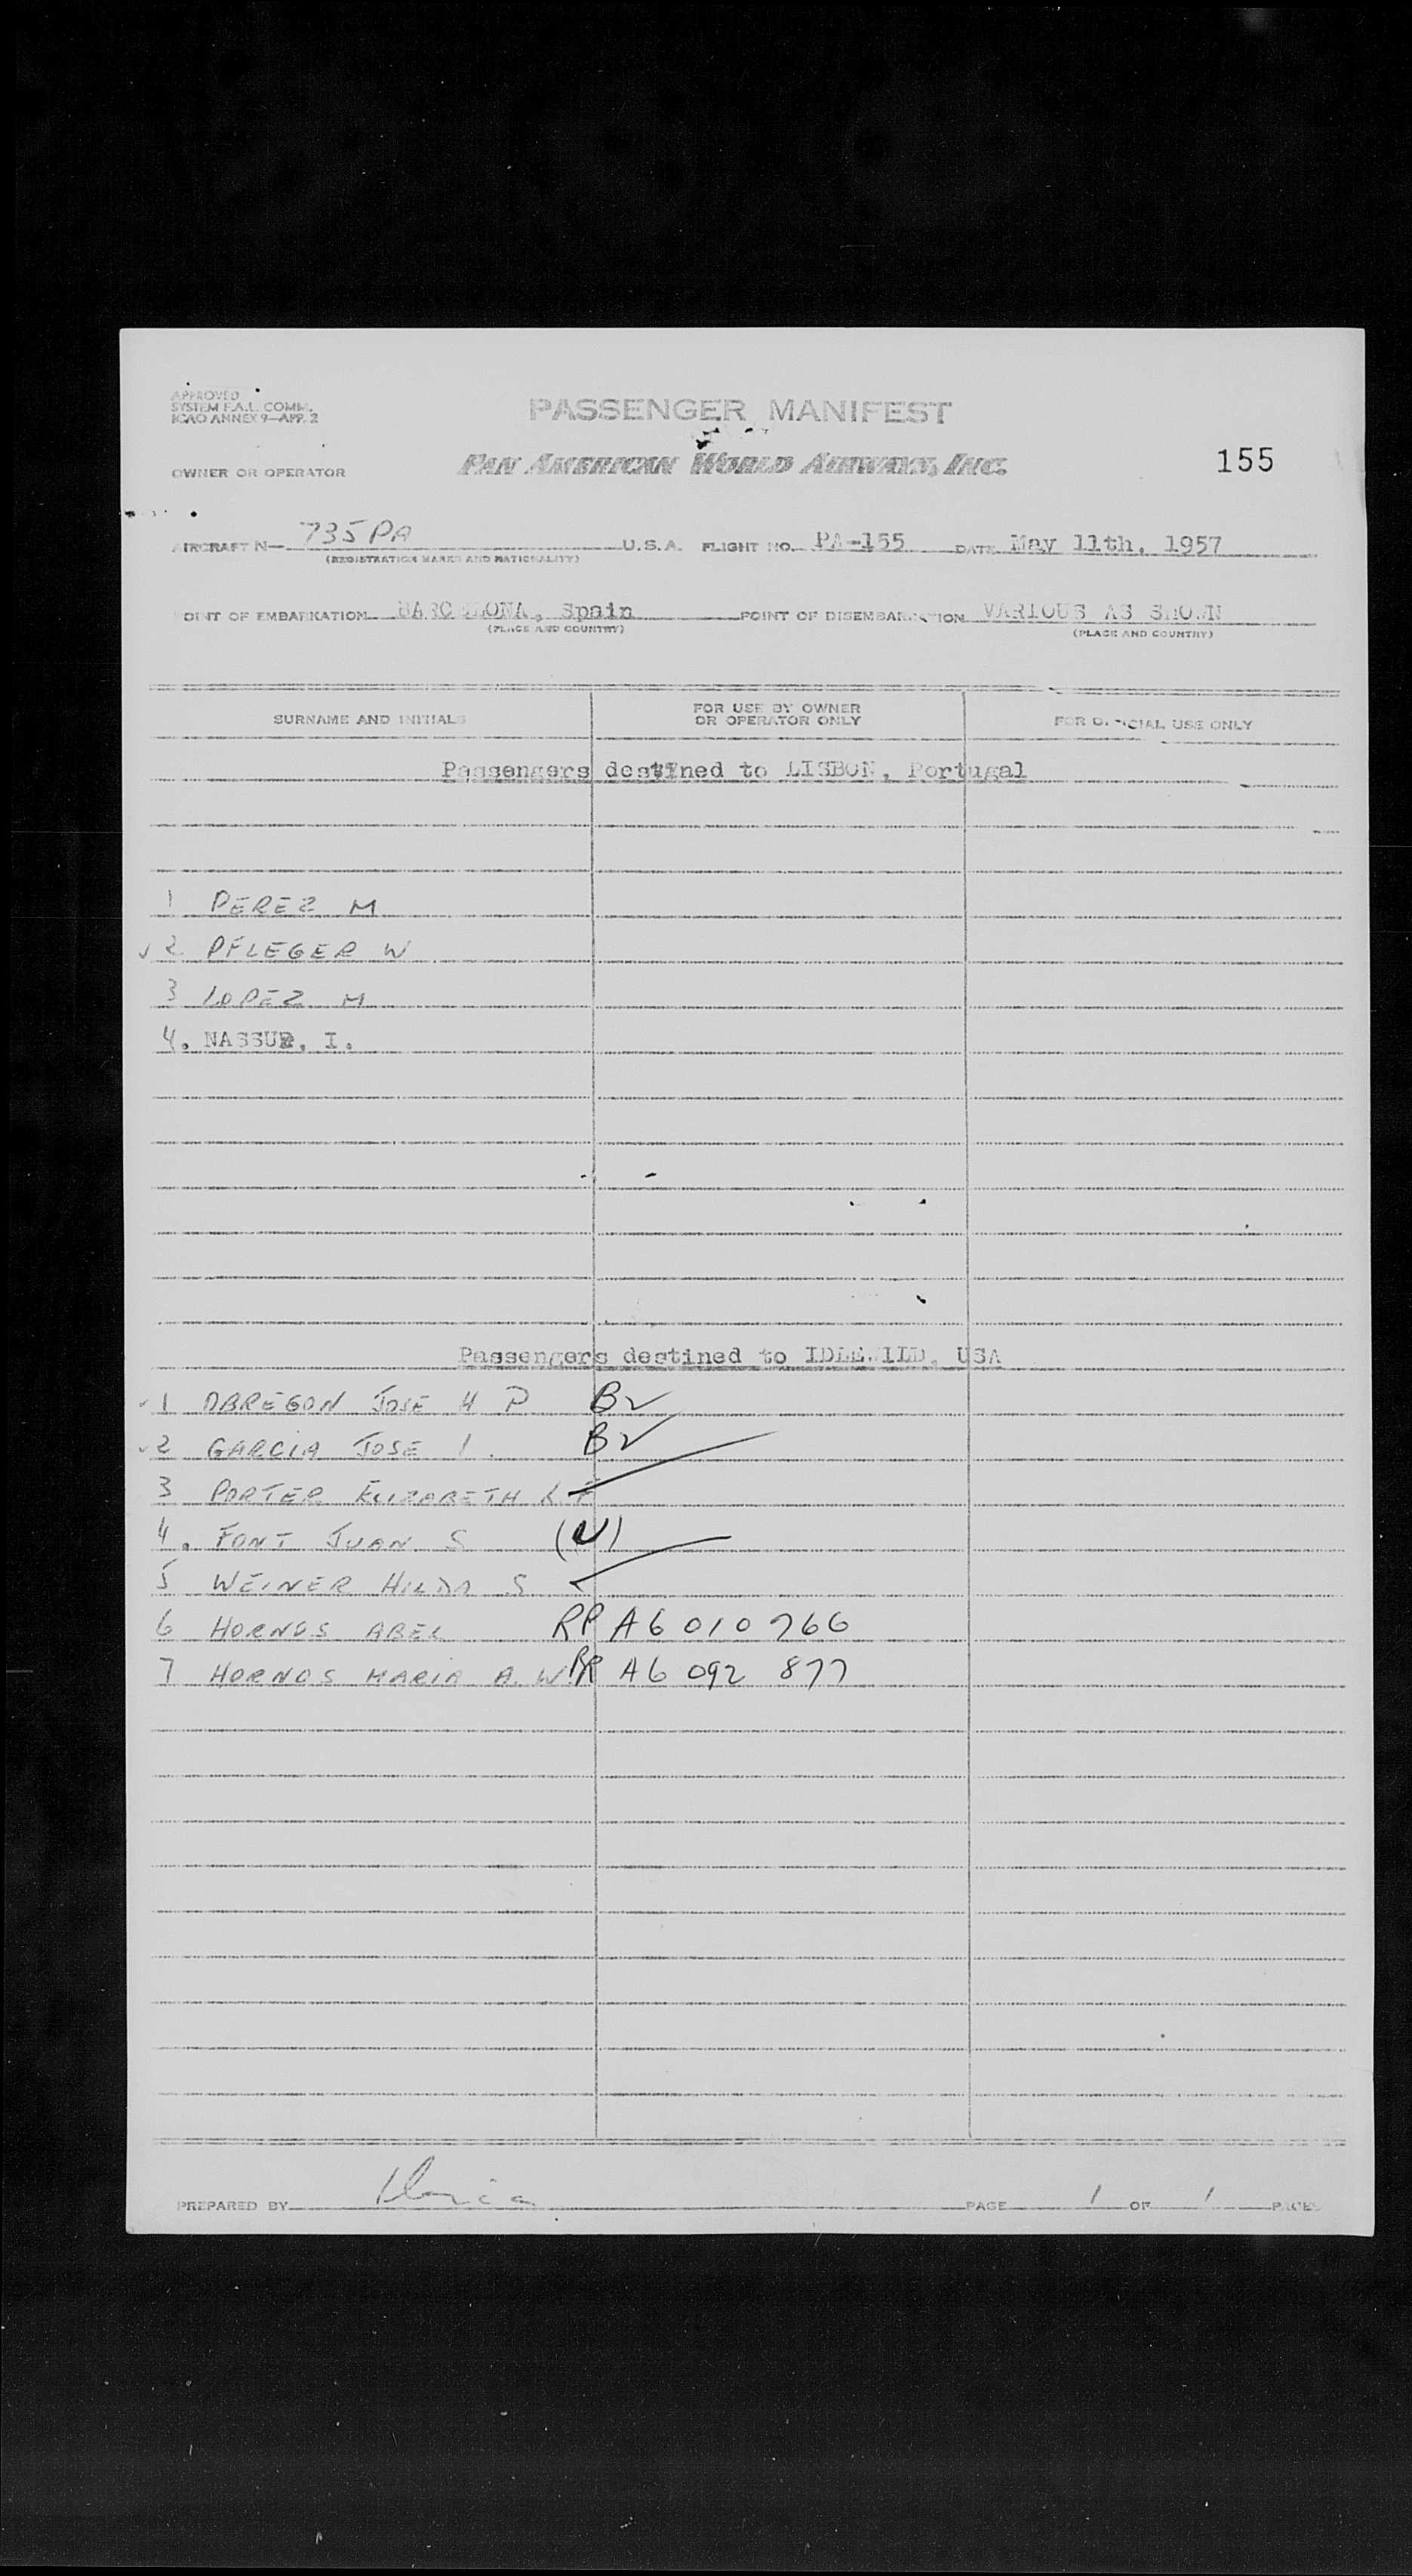 APPROVED
SYSTEM F.A.L. COMM.
ICAO ANNEX 9—APP. 2
PASSENGER MANIFEST
OWNER OR OPERATOR PAN AMERICAN WORLD AIRWAYS, INC. 155
AIRCRAFT N— 735PA U.S.A. FLIGHT NO. PA-155 DATE May 11th, 1957
(REGISTRATION MARKS AND NATIONALITY)
POINT OF EMBARKATION BARCELONA, Spain POINT OF DISEMBARKATION VARIOUS AS SHOWN
(PLACE AND COUNTRY) (PLACE AND COUNTRY)
SURNAME AND INITIALS FOR USE BY OWNER OR OPERATOR ONLY FOR OFFICIAL USE ONLY
Passengers destined to LISBON, Portugal
1 PEREZ M
✓ 2 PFLEGER W
3 LOPEZ M
4. NASSUR, I.
Passengers destined to IDLEWILD, USA
✓ 1 OBREGON JOSE H P B✓
✓ 2 GARCIA JOSE I. B✓
3 PORTER ELIZABETH L. F ✓
4. FONT JUAN S (N)
5 WEINER HILDA S ✓
6 HORNOS ABEL RP A6 010 766
7 HORNOS MARIA A. W RP A6 092 877
PREPARED BY PAGE 1 OF 1 PAGES